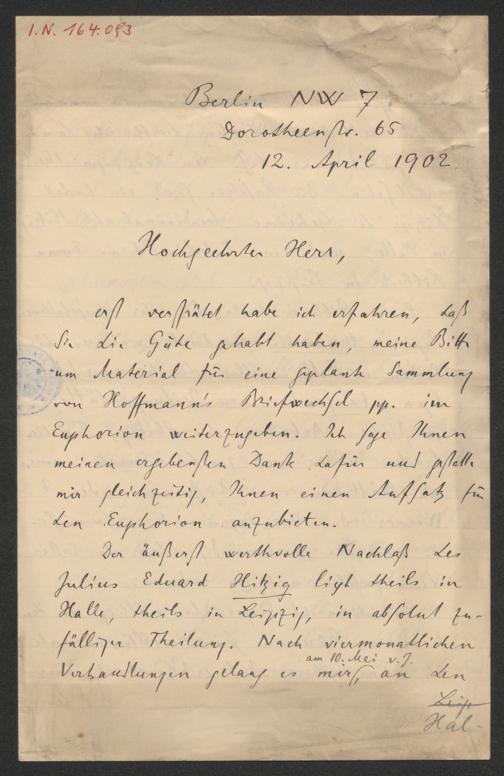 I.N. 164.093
Berlin NW 7
Dorotheenstr. 65
12. April 1902
Hochgeehrter Herr,
erst verspätet habe ich erfahren, daß
Sie die Güte gehabt haben, meine Bitte
um Material für eine geplante Sammlung
von Hoffmann's Briefwechsel pp. im
Euphorion weiterzugeben. Ich sage Ihnen
meinen ergebensten Dank dafür und gestatte
mir gleichzeitig, Ihnen einen Aufsatz für
den Euphorion anzubieten.
Der äußerst werthvolle Nachlaß des
Julius Eduard Hitzig liegt theils in
Halle, theils in Leipzig, in absolut zu-
fälliger Theilung. Nach viermonatlichen
am 10. Mai v. J.
Verhandlungen gelang es mir, an den
Leip
Hal-